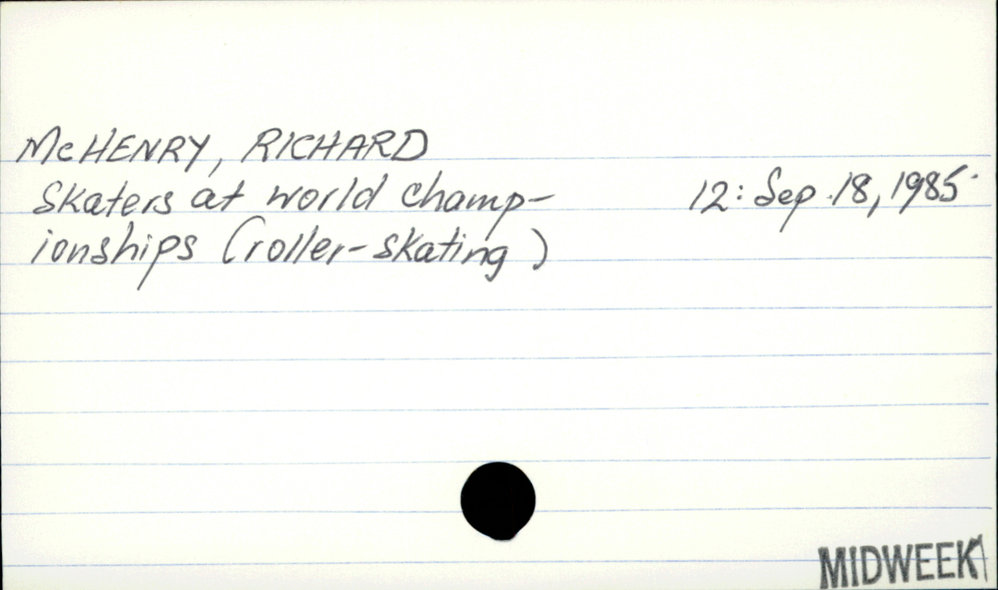 McHENRY, RICHARD
Skaters at world champ- 12: Sep. 18, 1985
ionships (roller-skating)
MIDWEEK